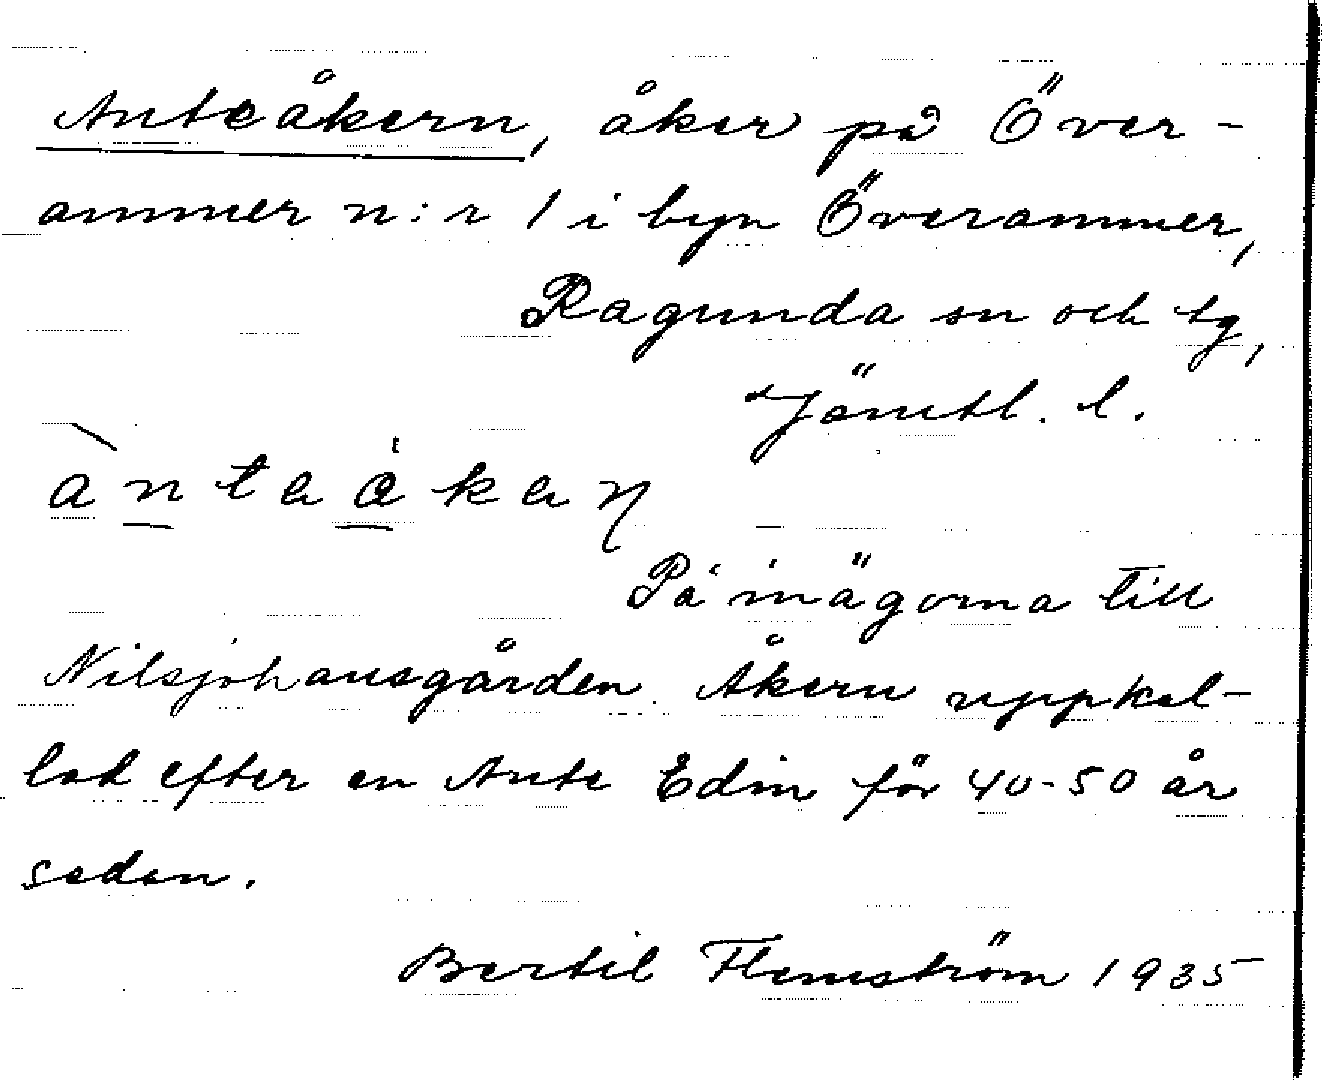 Anteåkern, åker på Över-
ammer n:r 1 i byn Överammer,
Ragunda sn och tg,
Jämtl. l.
àntaåkaɳ
På inägorna till
Nilsjohansgården. Åkern uppkal-
lad efter en Ante Edin för 40-50 år
sedan.
Bertil Flemström 1935